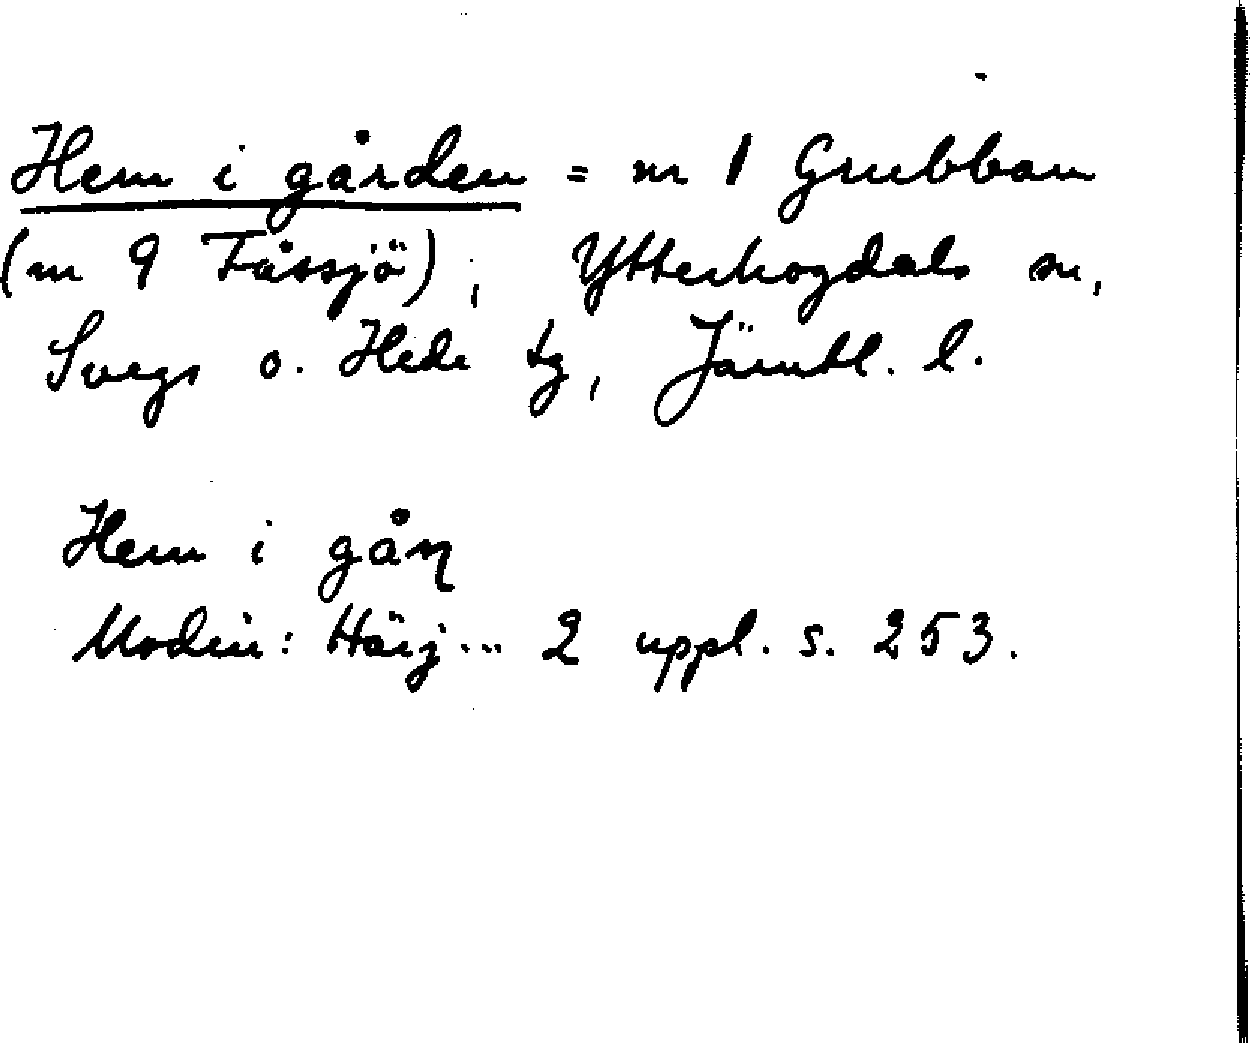 Hem i gården = nr 1 Grubban
(nr 9 Fåssjö), Ytterhogdals sn,
Svegs o. Hede tg, Jämtl. l.
Hem i gåɳ
Modin: Härj... 2 uppl. s. 253.